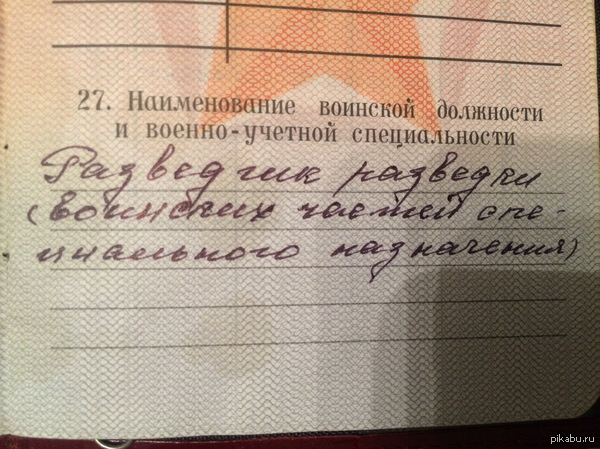 27. Наименование воинской должности
и военно-учетной специальности
Разведчик разведки
(воинских частей спе-
циального назначения)
pikabu.ru